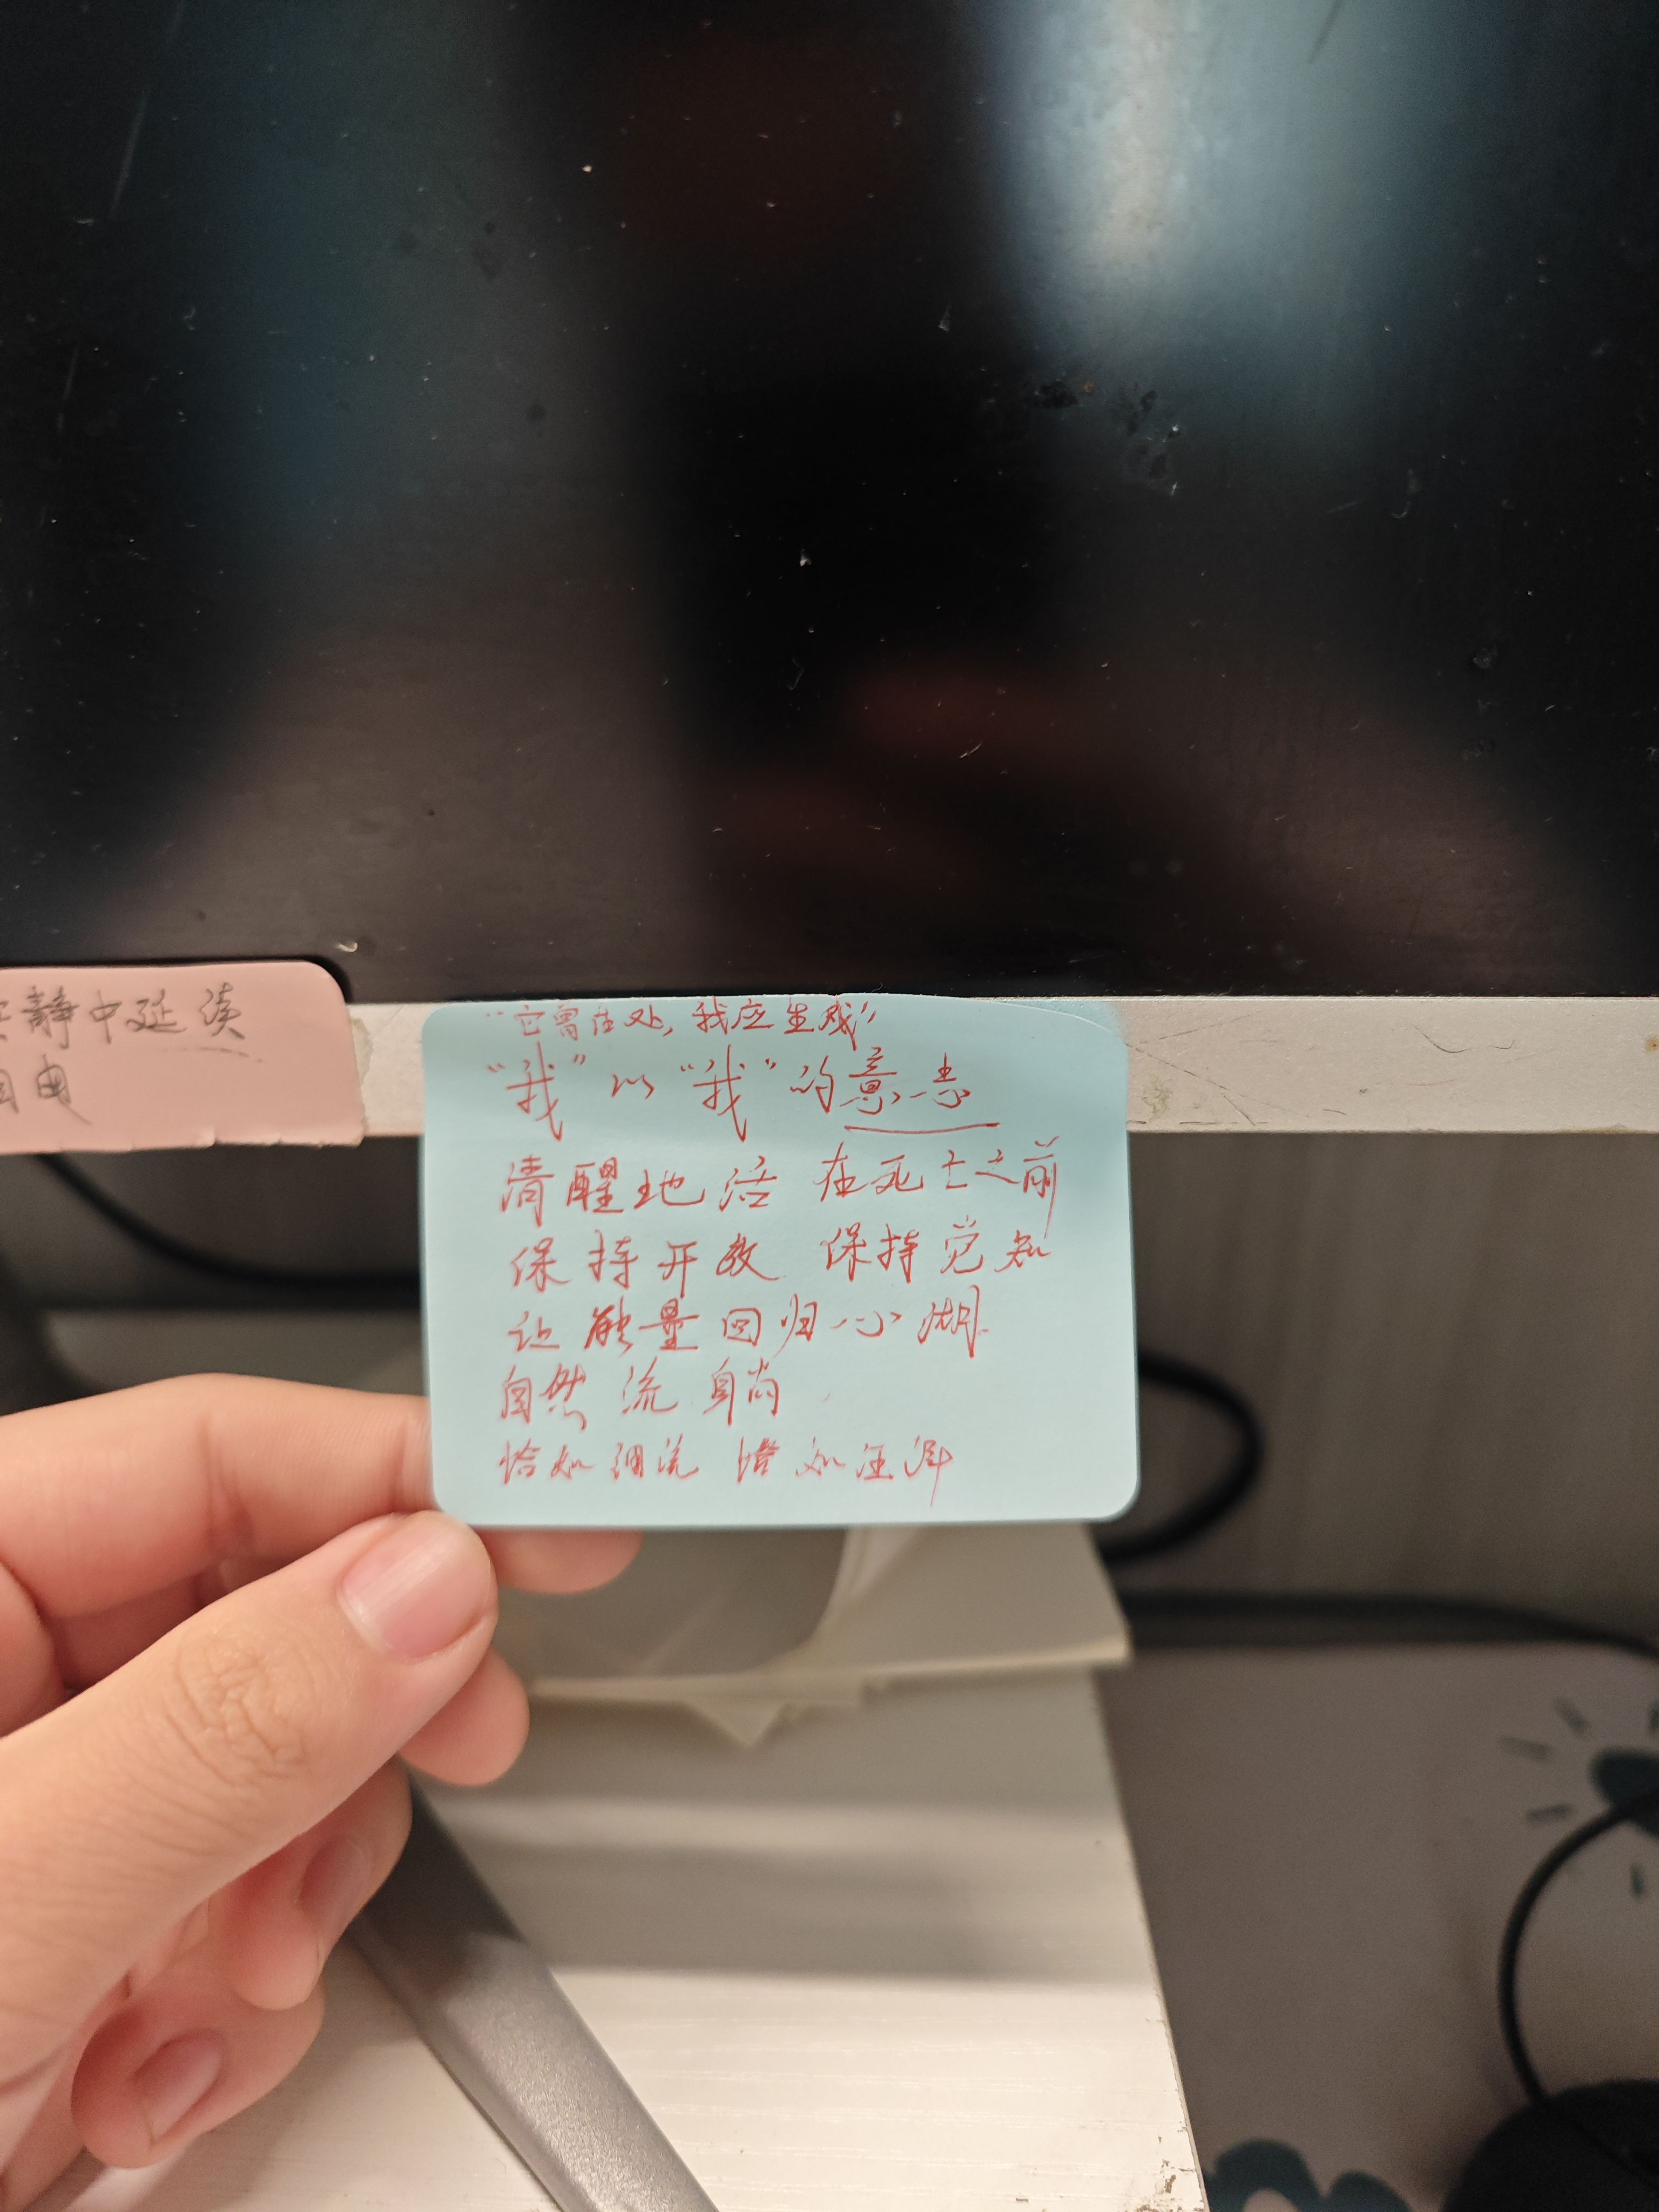 共静中延续
自由
“它曾在处，我应生成”
“我”以“我”的意志
清醒地活 在死亡之前
保持开放 保持觉知
让能量回归心湖
自然流淌
恰如细流 恰如汪洋